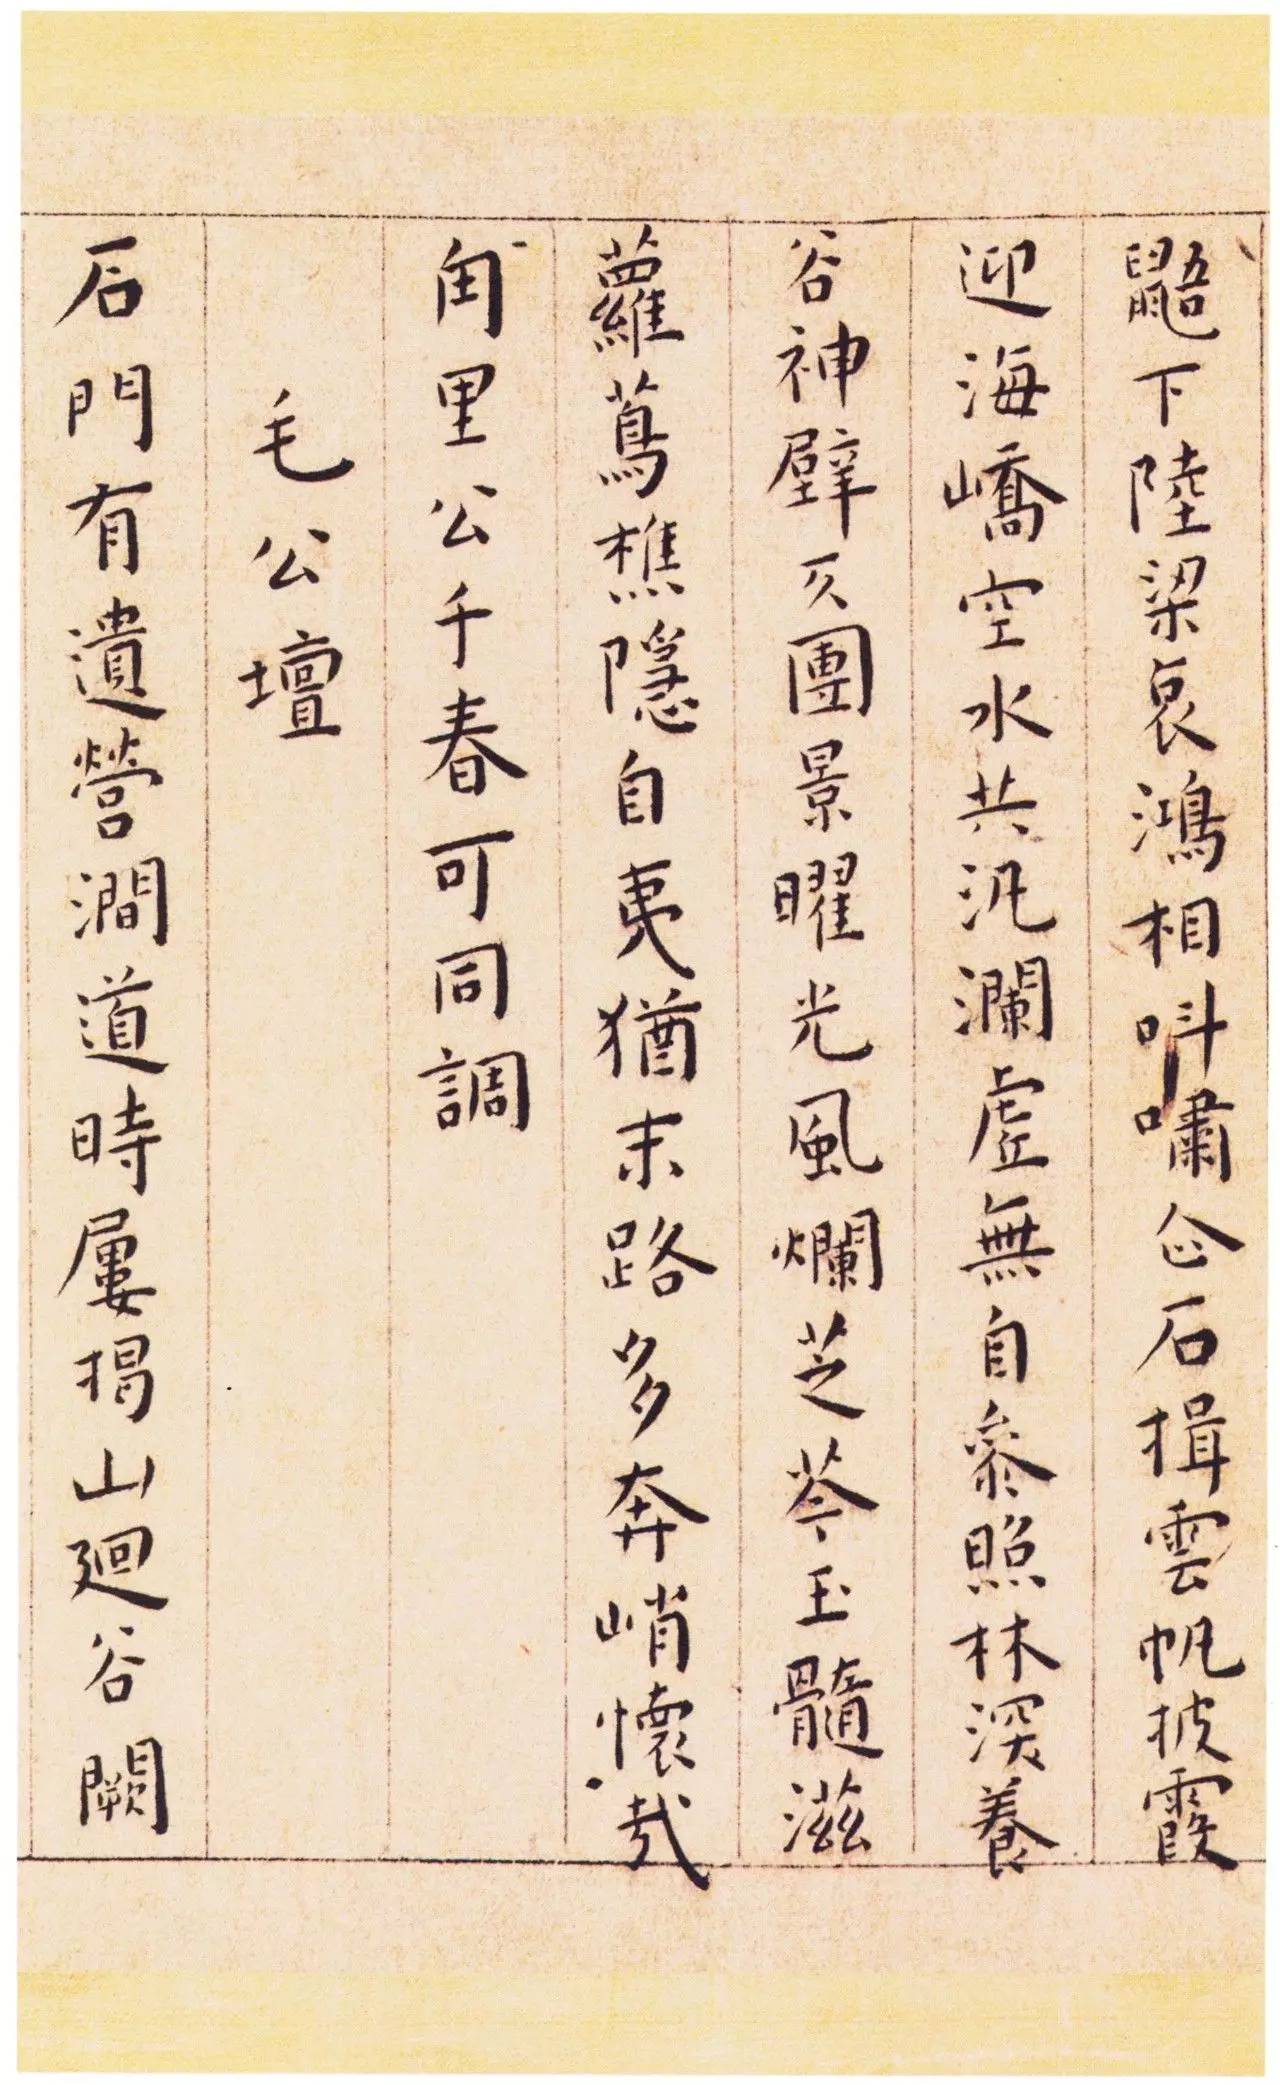 鼯下陸梁哀鴻相叫嘯仚石揖雲帆披霞
迎海嶠空水共汎瀾虛無自參照林深養
谷神壁仄團景曜光風爛芝苓玉髓滋
蘿蔦樵隱自夷猶末路多奔峭懷哉
甪里公千春可同調
毛公壇
石門有遺營澗道時屢揭山迴谷闕